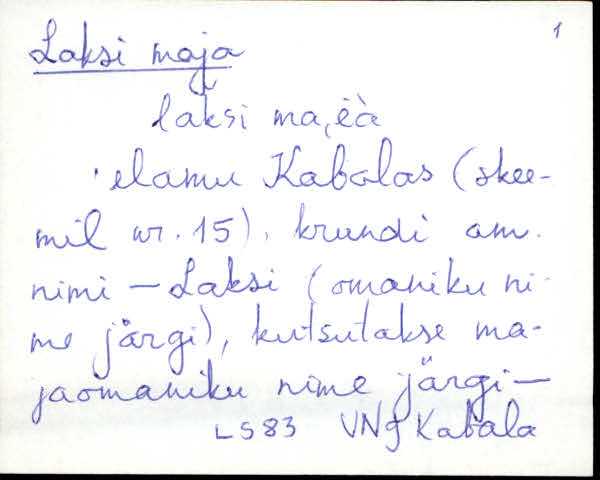 1
Laksi maja
laksi ma͔i̯à
elamu Kabalas (skee-
mil nr. 15), krundi am.
nimi - Laksi (omaniku ni-
me järgi), kutsutakse ma-
jaomaniku nime järgi -
LS83 VNg Kabala